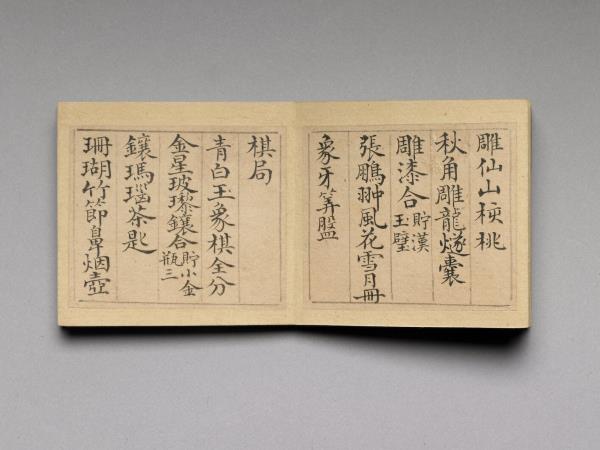 雕仙山核桃
秋角雕龍燧囊
雕漆合貯漢玉璧
張鵬翀風花雪月冊
象牙筭盤
棋局
青白玉象棋全分
金星玻瓈鑲合貯小金瓶三
鑲瑪瑙茶匙
珊瑚竹節鼻烟壺